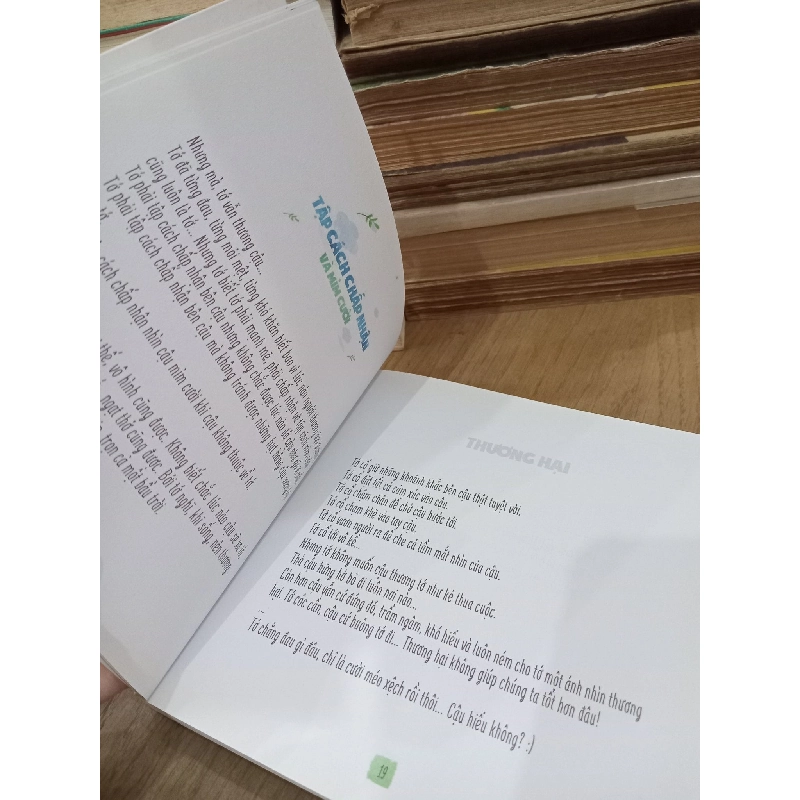 TẬP CÁCH CHẤP NHẬN
VÀ MỈM CƯỜI
Nhưng mà, tớ vẫn thương cậu...
Tớ đã từng đau, từng mỏi mệt, từng khó khăn biết bao vì lúc nào người thương
cũng luôn là tớ... Nhưng tớ biết tớ phải mạnh mẽ, phải chấp nhận và tập cách
Tớ phải tập cách chấp nhận bên cậu nhưng không chắc được lúc nào
Tớ phải tập cách chấp nhận bên cậu mà không tránh được những hạt nắng
cách chấp nhận nhìn cậu mỉm cười khi cậu không thuộc về tớ.
thế, vô hình cũng được. Không biết chắc lúc nào cậu sẽ ra đi
ngạt thở cũng được. Bởi tớ nghĩ, khi sống nên thương
trọn cả một bầu trời.
THƯƠNG HẠI
Tớ cố giữ những khoảnh khắc bên cậu thật tuyệt vời.
Tớ cố đặt tất cả cảm xúc vào cậu.
Tớ cố chậm chân để chờ cậu bước tới.
Tớ cố chạm khẽ vào tay cậu.
Tớ cố vươn người ra để che cả tầm mắt nhìn của cậu.
Tớ cố tới vô kể...
Nhưng tớ không muốn cậu thương tớ như kẻ thua cuộc.
Thà cậu hững hờ bỏ đi luôn nơi nào...
Còn hơn cậu vẫn cứ đứng đó, trầm ngâm, khó hiểu và luôn ném cho tớ một ánh nhìn thương
hại. Tớ cóc cần, cậu cứ buông tớ đi... Thương hại không giúp chúng ta tốt hơn đâu!
...
Tớ chẳng đau gì đâu, chỉ là cười méo xệch rồi thôi... Cậu hiểu không? :)
19